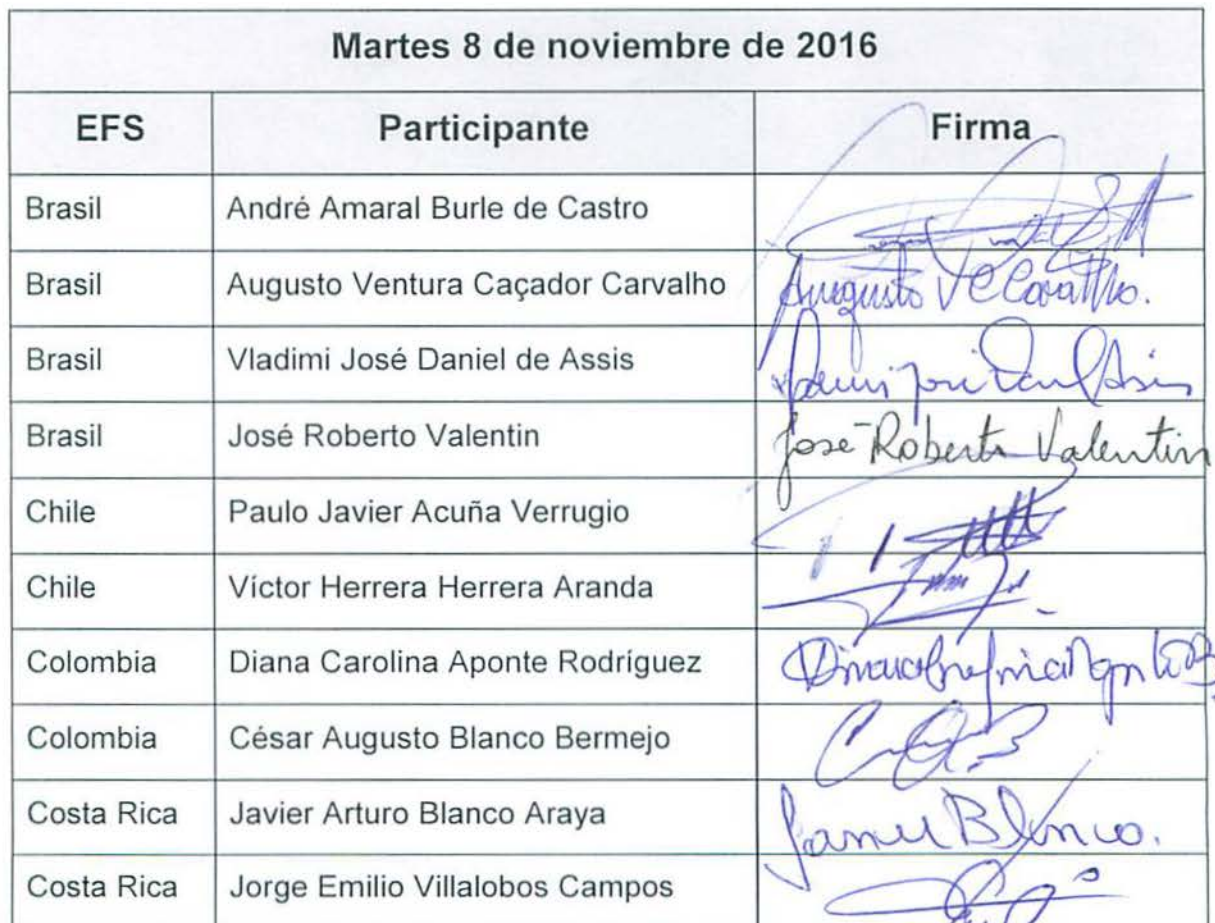 Martes 8 de noviembre de 2016
EFS Participante Firma
Brasil André Amaral Burle de Castro
Brasil Augusto Ventura Caçador Carvalho Augusto V C Carvalho.
Brasil Vladimi José Daniel de Assis
Brasil José Roberto Valentin José Roberto Valentin
Chile Paulo Javier Acuña Verrugio
Chile Víctor Herrera Herrera Aranda
Colombia Diana Carolina Aponte Rodríguez
Colombia César Augusto Blanco Bermejo
Costa Rica Javier Arturo Blanco Araya Javier Blanco.
Costa Rica Jorge Emilio Villalobos Campos